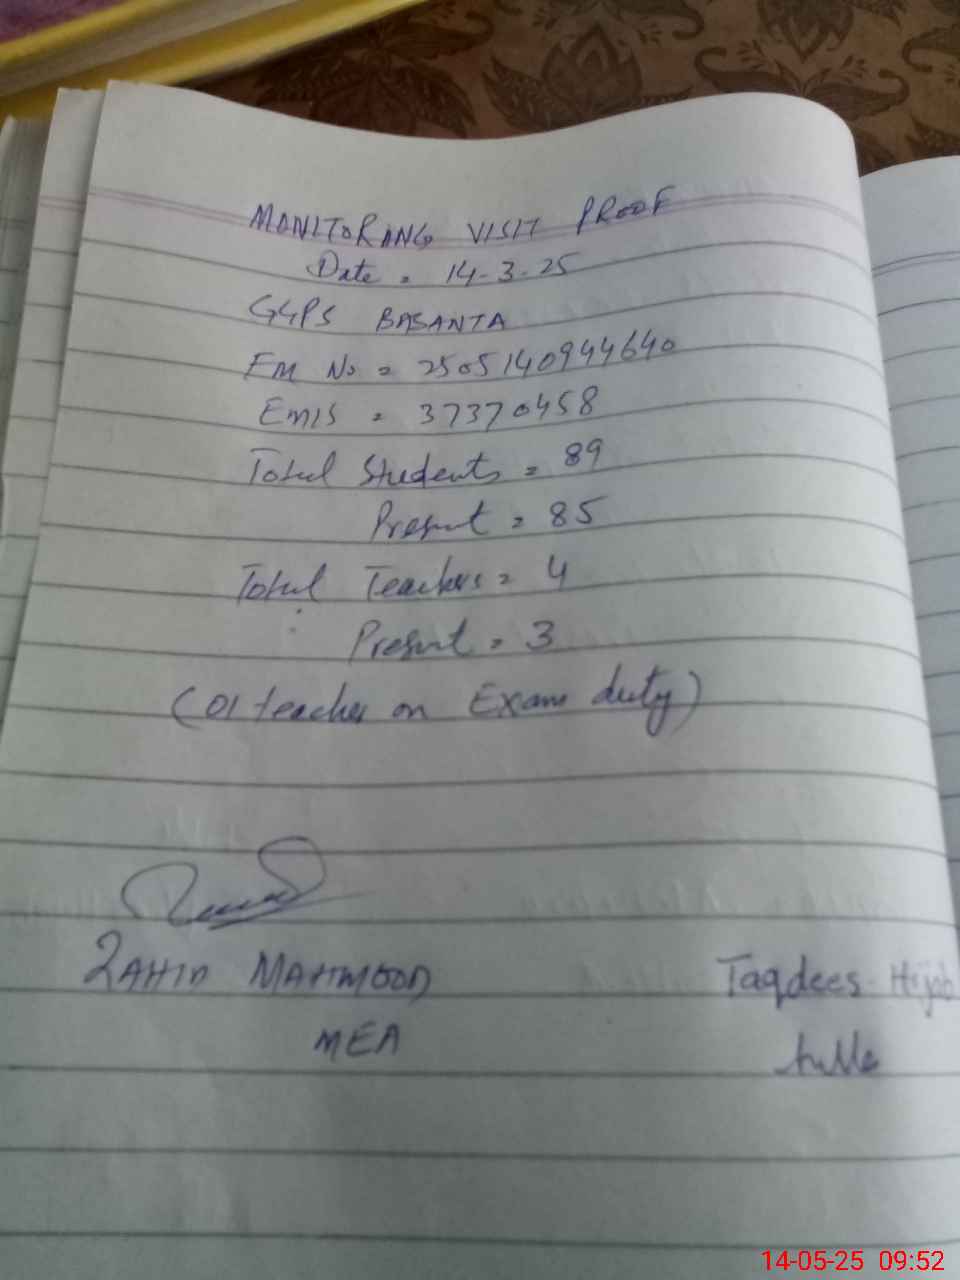 MONITORANG VISIT PROOF
Date = 14-3-25
GGPS BASANTA
FM No = 2505140944640
EMIS = 37370458
Total Students = 89
Present = 85
Total Teachers = 4
Present = 3
(01 teacher on Exam duty)
ZAHID MAHMOOD
MEA
Taqdees Hijab
14-05-25 09:52